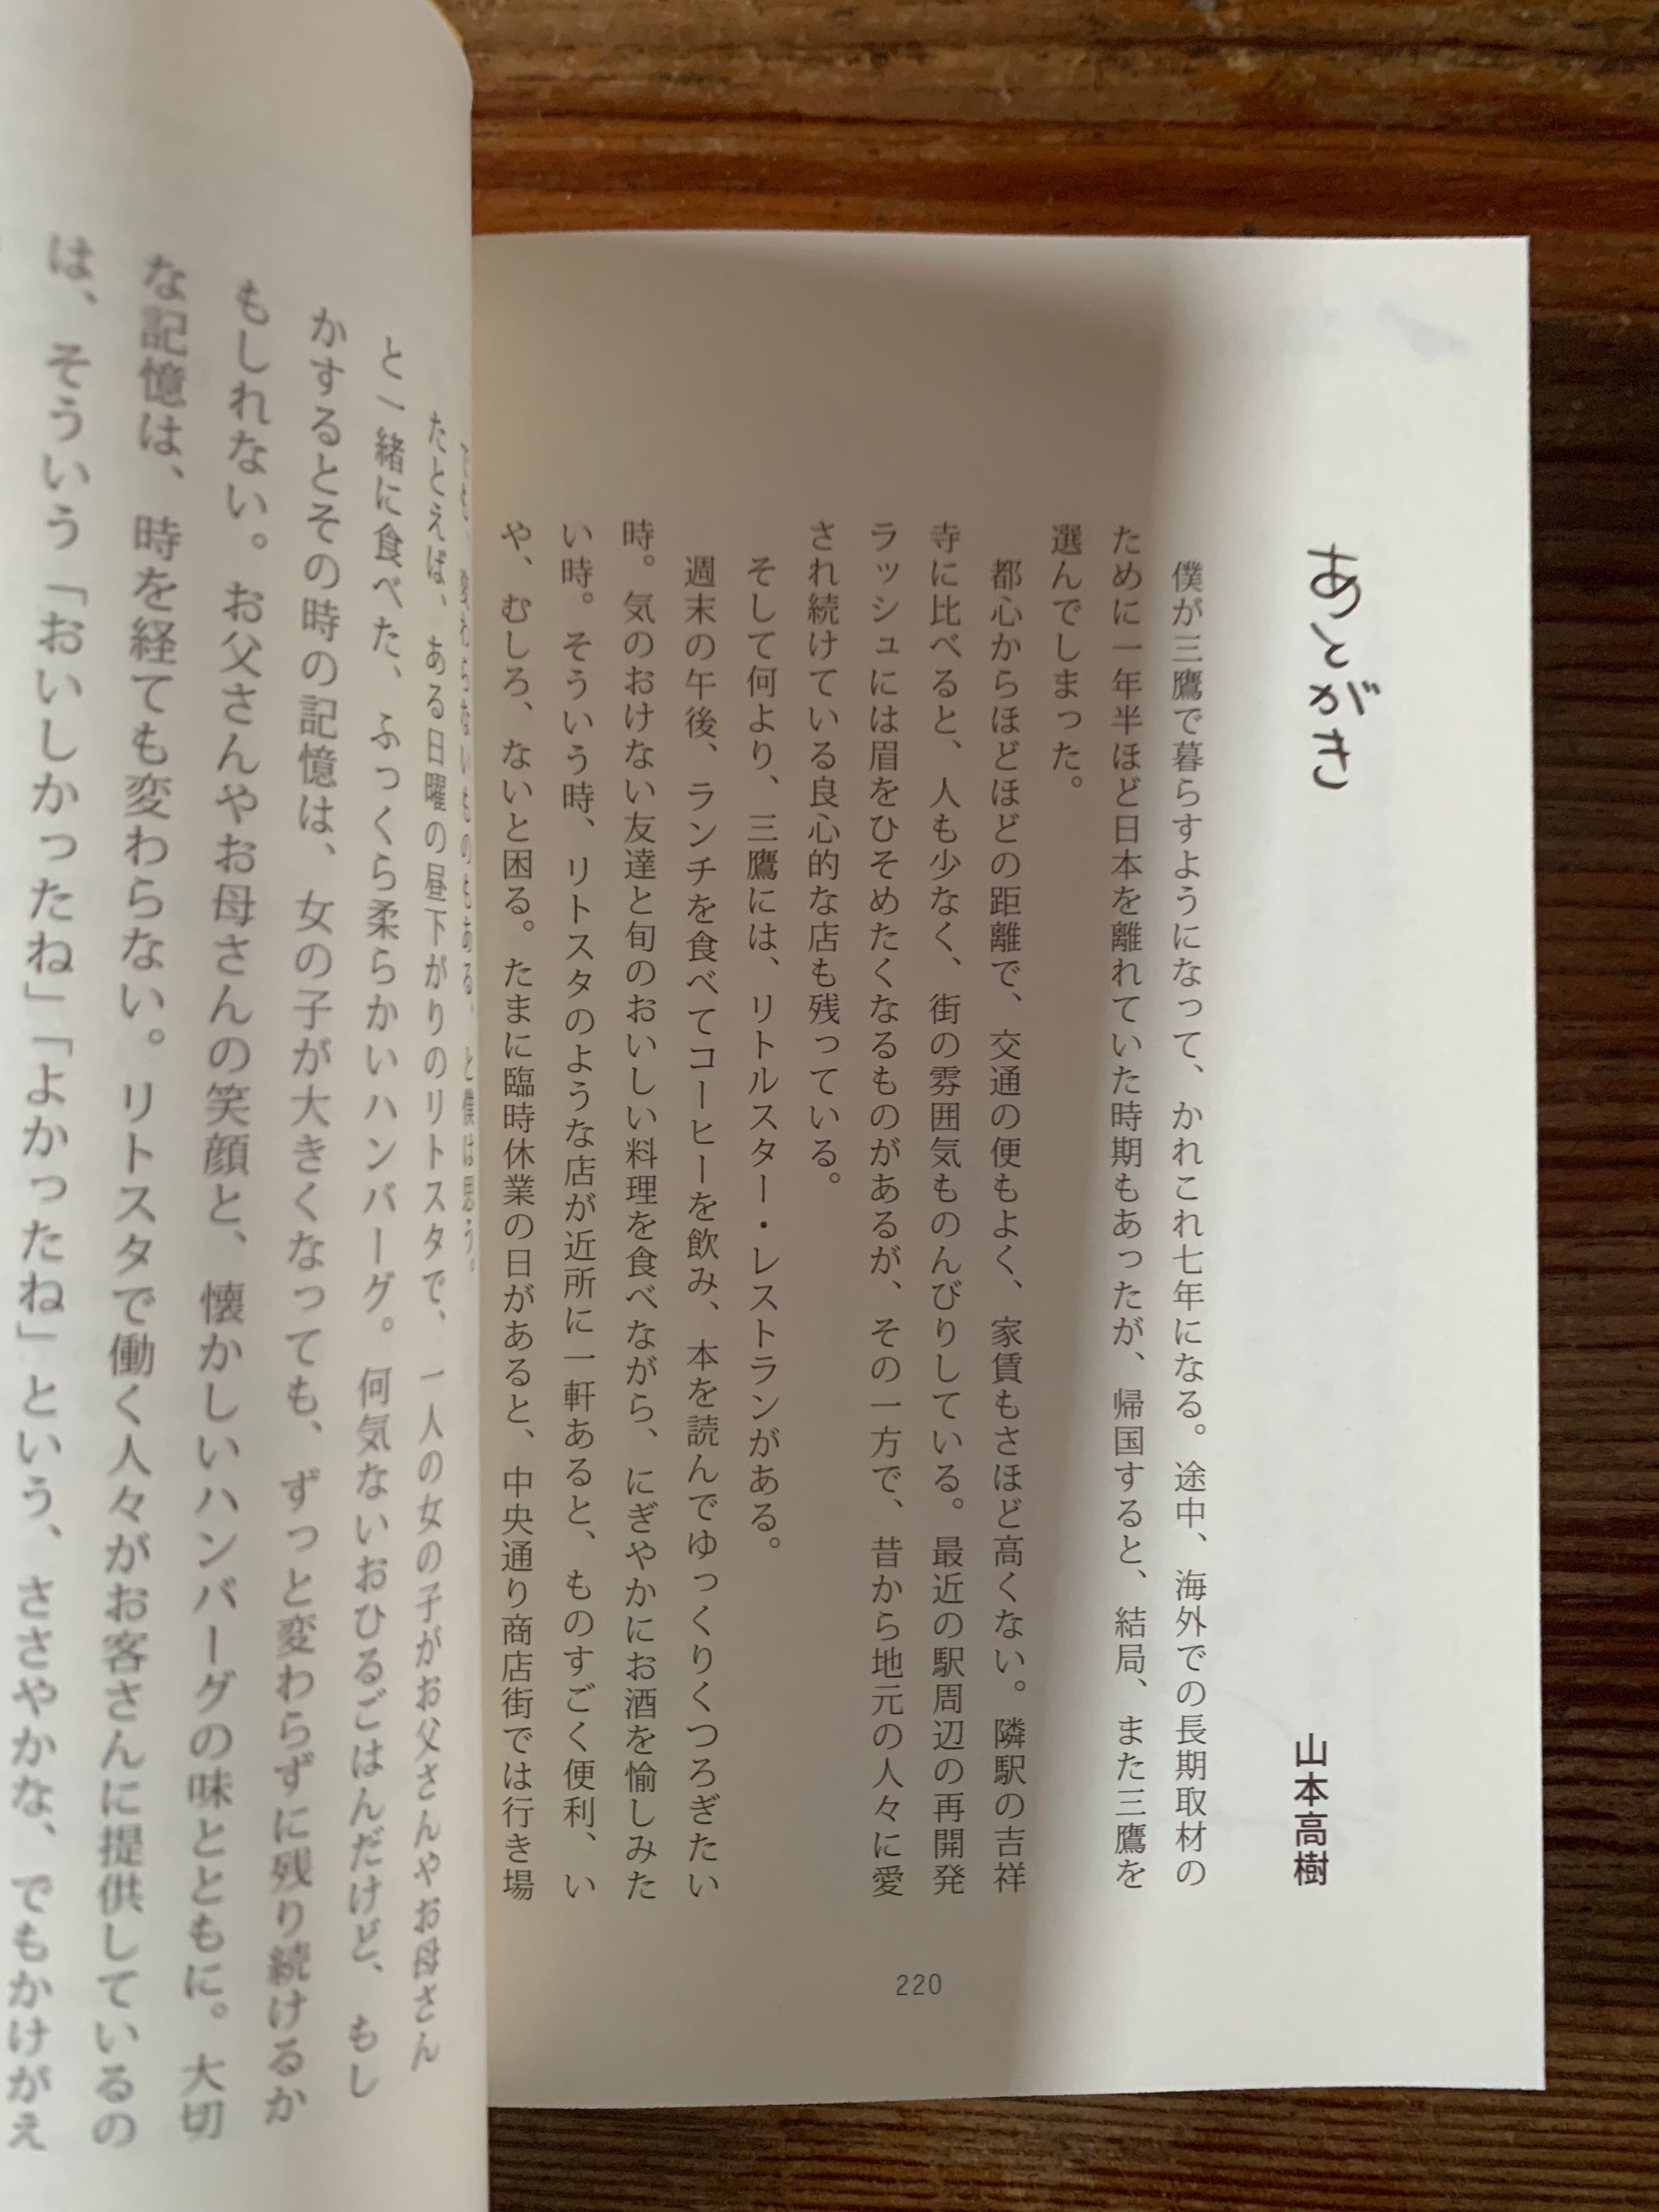 あとがき
山本高樹
僕が三鷹で暮らすようになって、かれこれ七年になる。途中、海外での長期取材の
ために一年半ほど日本を離れていた時期もあったが、帰国すると、結局、また三鷹を
選んでしまった。
都心からほどほどの距離で、交通の便もよく、家賃もさほど高くない。隣駅の吉祥
寺に比べると、人も少なく、街の雰囲気ものんびりしている。最近の駅周辺の再開発
ラッシュには眉をひそめたくなるものがあるが、その一方で、昔から地元の人々に愛
され続けている良心的な店も残っている。
そして何より、三鷹には、リトルスター・レストランがある。
週末の午後、ランチを食べてコーヒーを飲み、本を読んでゆっくりくつろぎたい
時。気のおけない友達と旬のおいしい料理を食べながら、にぎやかにお酒を愉しみた
い時。そういう時、リトスタのような店が近所に一軒あると、ものすごく便利、い
や、むしろ、ないと困る。たまに臨時休業の日があると、中央通り商店街では行き場
220
変わらないものもある、と僕は思う。
たとえば、ある日曜の昼下がりのリトスタで、一人の女の子がお父さんやお母さん
と一緒に食べた、ふっくら柔らかいハンバーグ。何気ないおひるごはんだけど、もし
かするとその時の記憶は、女の子が大きくなっても、ずっと変わらずに残り続けるか
もしれない。お父さんやお母さんの笑顔と、懐かしいハンバーグの味とともに。大切
な記憶は、時を経ても変わらない。リトスタで働く人々がお客さんに提供しているの
は、そういう「おいしかったね」「よかったね」という、ささやかな、でもかけがえ